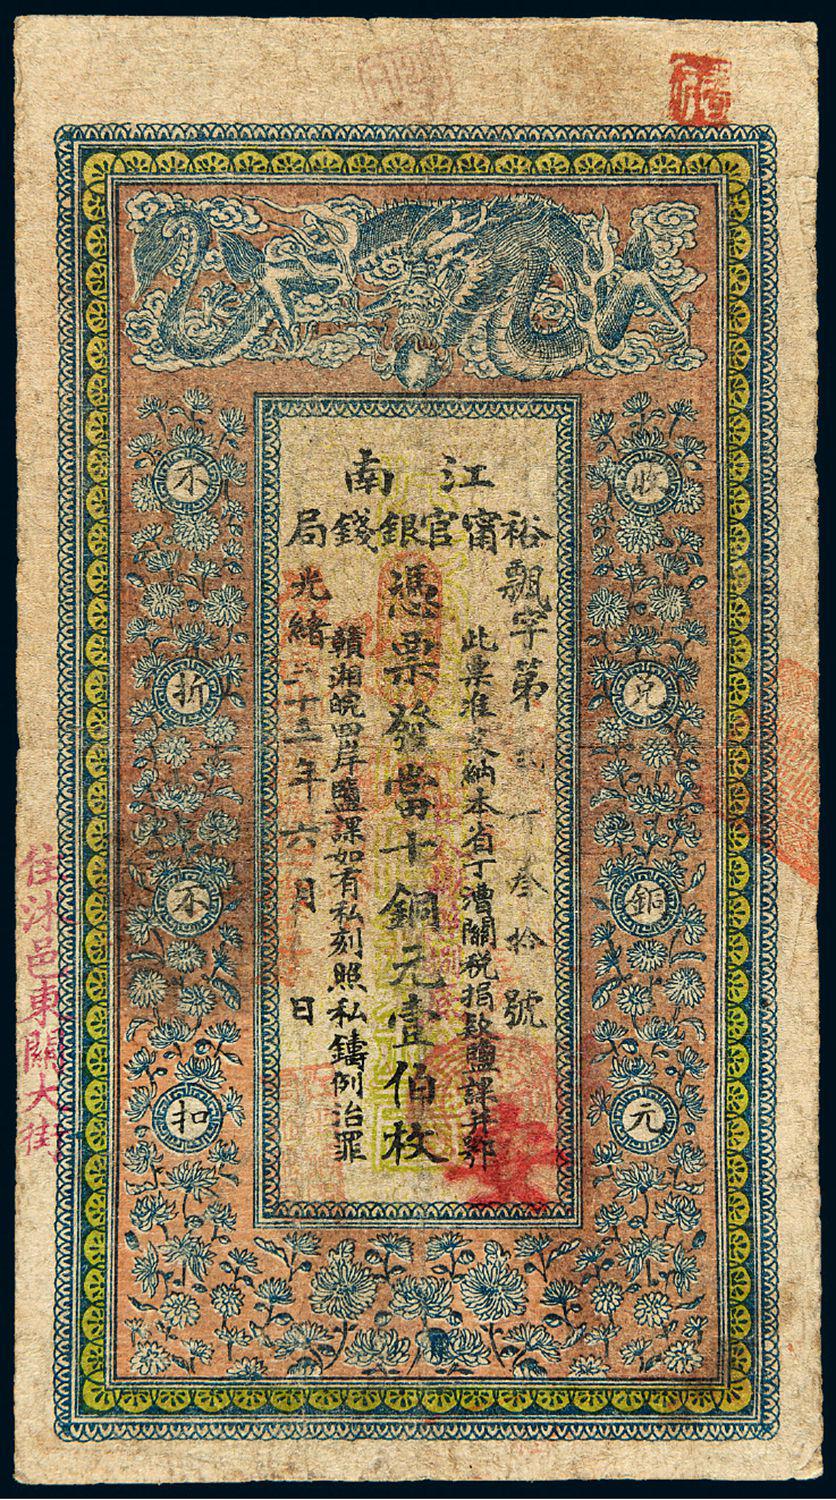 江南
裕甯官銀錢局
飄字第貳千叁拾號
此票准完納本省丁漕關稅捐款鹽課并鄂
憑票發當十銅元壹伯枚
贛湘皖四岸鹽課如有私刻照私鑄例治罪
光緒三十三年六月日
收兌銅元
不折不扣
住沐邑東關大街